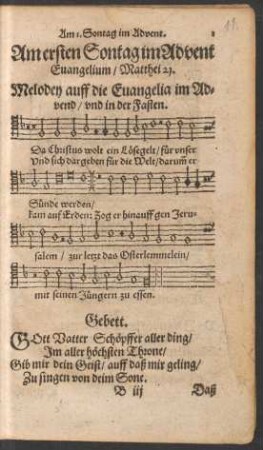 Am 1. Sontag im Advent. 1
Am ersten Sontag im Advent
Euangelium / Matthei 21.
Melodey auff die Euangelia im Ad-
vend / vnd in der Fasten.
Da Christus wolt ein Lösegelt / für vnser
Vnd sich dargeben für die Welt / darum̃ er
Sünde werden /
kam auf Erden: Zog er hinauff gen Jeru-
salem / zur letzt das Osterlemmelein /
mit seinen Jüngern zu essen.
Gebett.
GOtt Vatter Schöpffer aller ding /
Im aller höchsten Throne /
Gib mir dein Geist / auff daß mir geling /
Zu singen von deim Sone.
B iij Daß